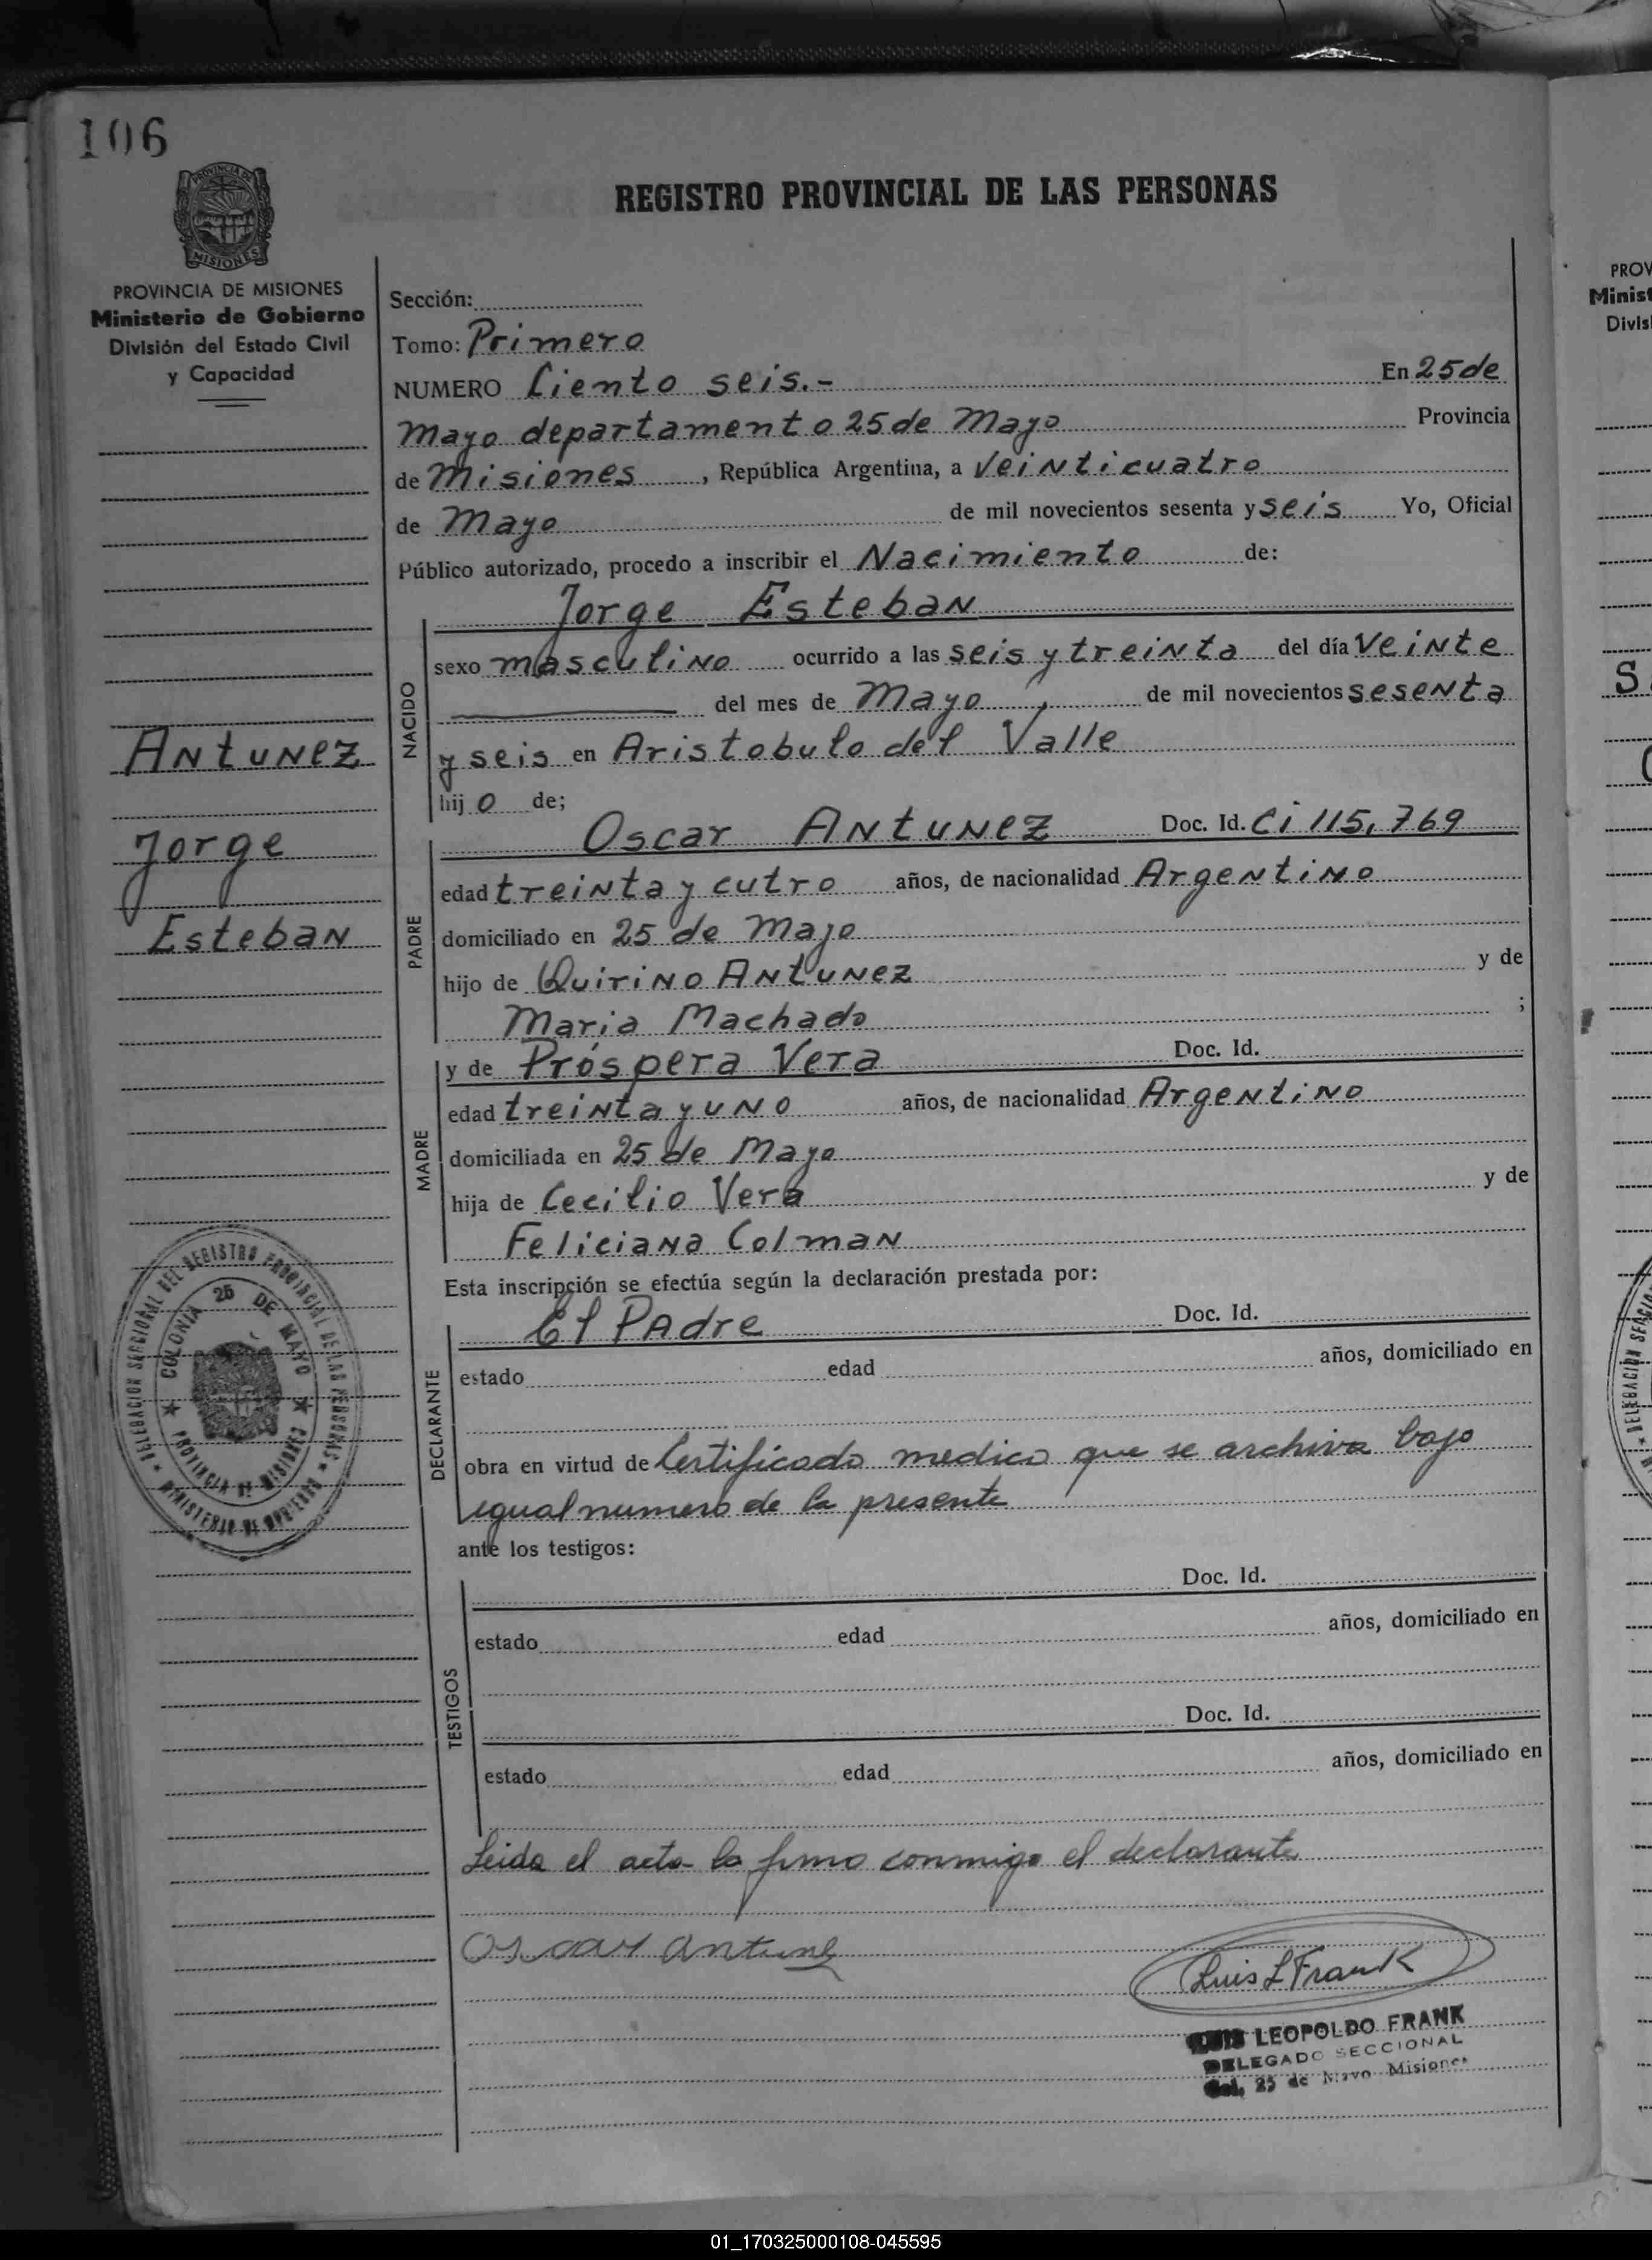 106
PROVINCIA DE
MISIONES
REGISTRO PROVINCIAL DE LAS PERSONAS
PROVINCIA DE MISIONES
Ministerio de Gobierno
División del Estado Civil
y Capacidad
Antunez
Jorge
Esteban
Sección:
Tomo: Primero
NUMERO Ciento seis.- En 25 de
Mayo departamento 25 de Mayo Provincia
de Misiones, República Argentina, a Veinticuatro
de Mayo de mil novecientos sesenta y seis Yo, Oficial
Público autorizado, procedo a inscribir el Nacimiento de:
NACIDO
Jorge Esteban
sexo masculino ocurrido a las seis y treinta del día Veinte
del mes de Mayo de mil novecientos sesenta
y seis en Aristobulo del Valle
hijo de;
PADRE
Oscar Antunez Doc. Id. Ci 115,769
edad treinta y cutro años, de nacionalidad Argentino
domiciliado en 25 de Mayo
hijo de Quirino Antunez y de
Maria Machado ;
MADRE
y de Próspera Vera Doc. Id.
edad treinta y uno años, de nacionalidad Argentino
domiciliada en 25 de Mayo
hija de Cecilio Vera y de
Feliciana Colman
Esta inscripción se efectúa según la declaración prestada por:
DECLARANTE
El Padre Doc. Id.
estado edad años, domiciliado en
obra en virtud de Certificado medico que se archiva bajo
igual numero de la presente
ante los testigos:
TESTIGOS
Doc. Id.
estado edad años, domiciliado en
Doc. Id.
estado edad años, domiciliado en
Leida el acta la firmo conmigo el declarante
Oscar Antunez
Luis L Frank
LUIS LEOPOLDO FRANK
DELEGADO SECCIONAL
Col. 25 de Mayo Misiones
DELEGACION SECCIONAL DEL REGISTRO PROVINCIAL DE LAS PERSONAS
MINISTERIO DE GOBIERNO
COLONIA 25 DE MAYO
PROVINCIA DE MISIONES
PROV
Minist
Divis
01_170325000108-045595